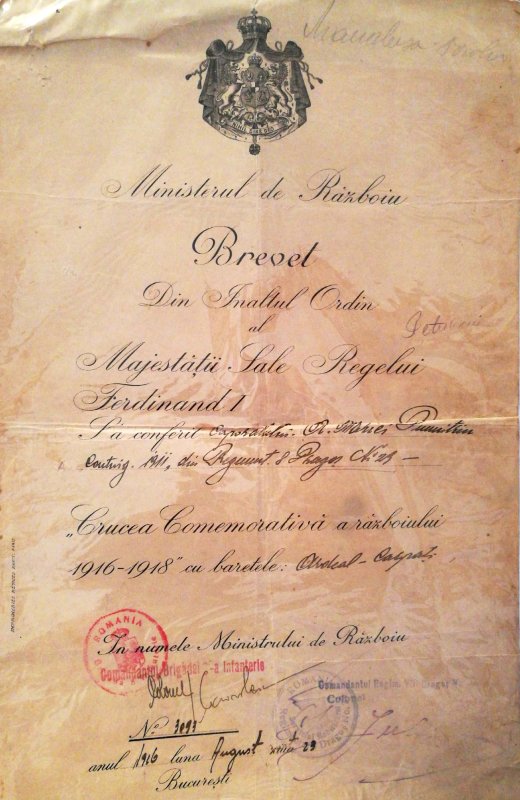 Ministerul de Războiu
Brevet
Din Inaltul Ordin
al
Majestății Sale Regelui
Ferdinand I
S'a conferit Caporalului Dumitru
Contig. 1911, din Regiment 8 No 29 —
„Crucea Comemorativă a războiului
1916-1918" cu baretele: Ardeal - Carpați
ROMANIA
In numele Ministrului de Războiu
Comandantul Brigadei a Infanterie
Colonel
ROMANIA
Comandantul Regim. Dragoș N
Colonel
No. 3093
anul 1926 luna August ziua 29
București